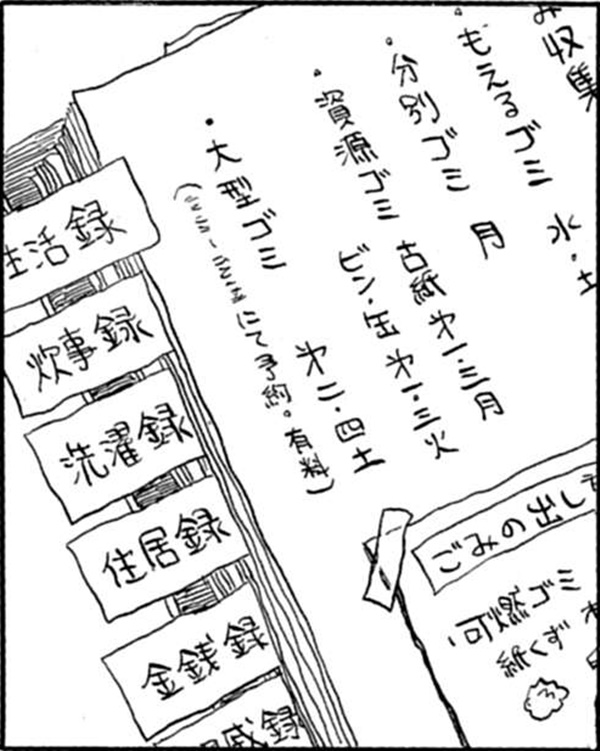 み収集
・もえるゴミ 水・土
・分別ゴミ 月
・資源ゴミ 古紙 第一・三月
ビン・缶 第一・三火
・大型ゴミ 第二・四土
にて予約。有料)
生活録
炊事録
洗濯録
住居録
金銭録
録
ごみの出し
可燃ゴミ
紙くず